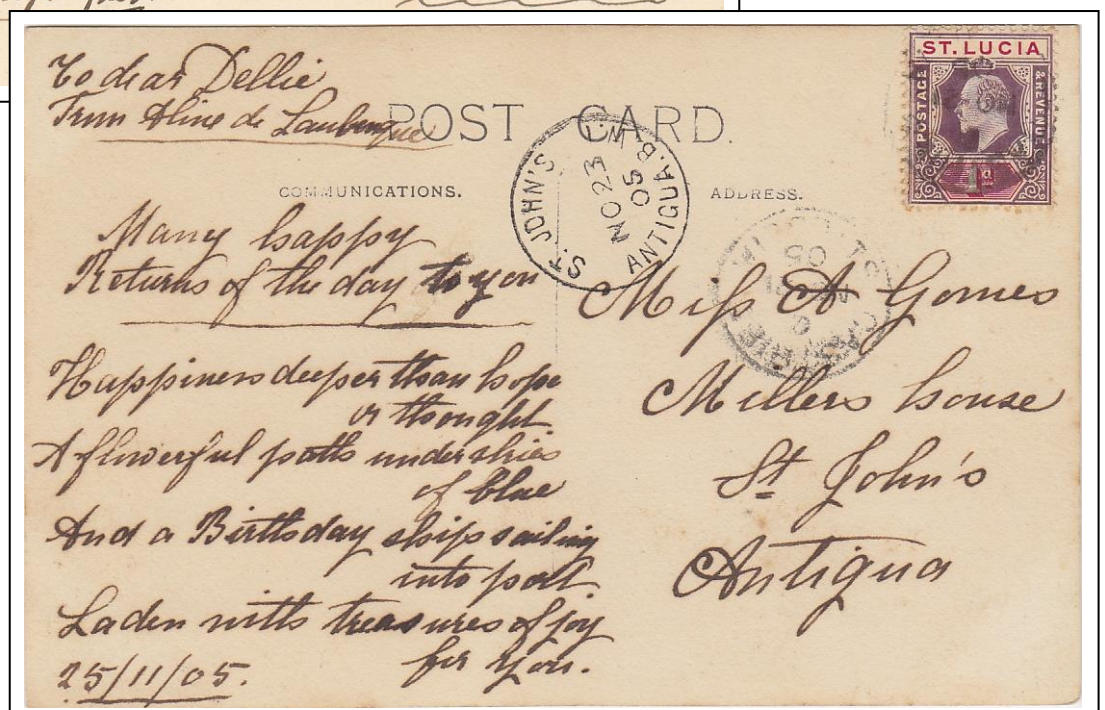 To dear Dellie
From Aline de Laubenque
POST CARD.
COMMUNICATIONS.
ADDRESS.
ST. LUCIA
POSTAGE & REVENUE
1d
ST. JOHN'S
NO 23
05
ANTIGUA. B.W.I.
Many happy
Returns of the day to you
Happiness deeper than hope
or thought
A flowerful path under skies
of blue
And a Birthday ship sailing
into port
Laden with treasures of joy
for you.
25/11/05.
Miss A Gomes
Millers house
St John's
Antigua